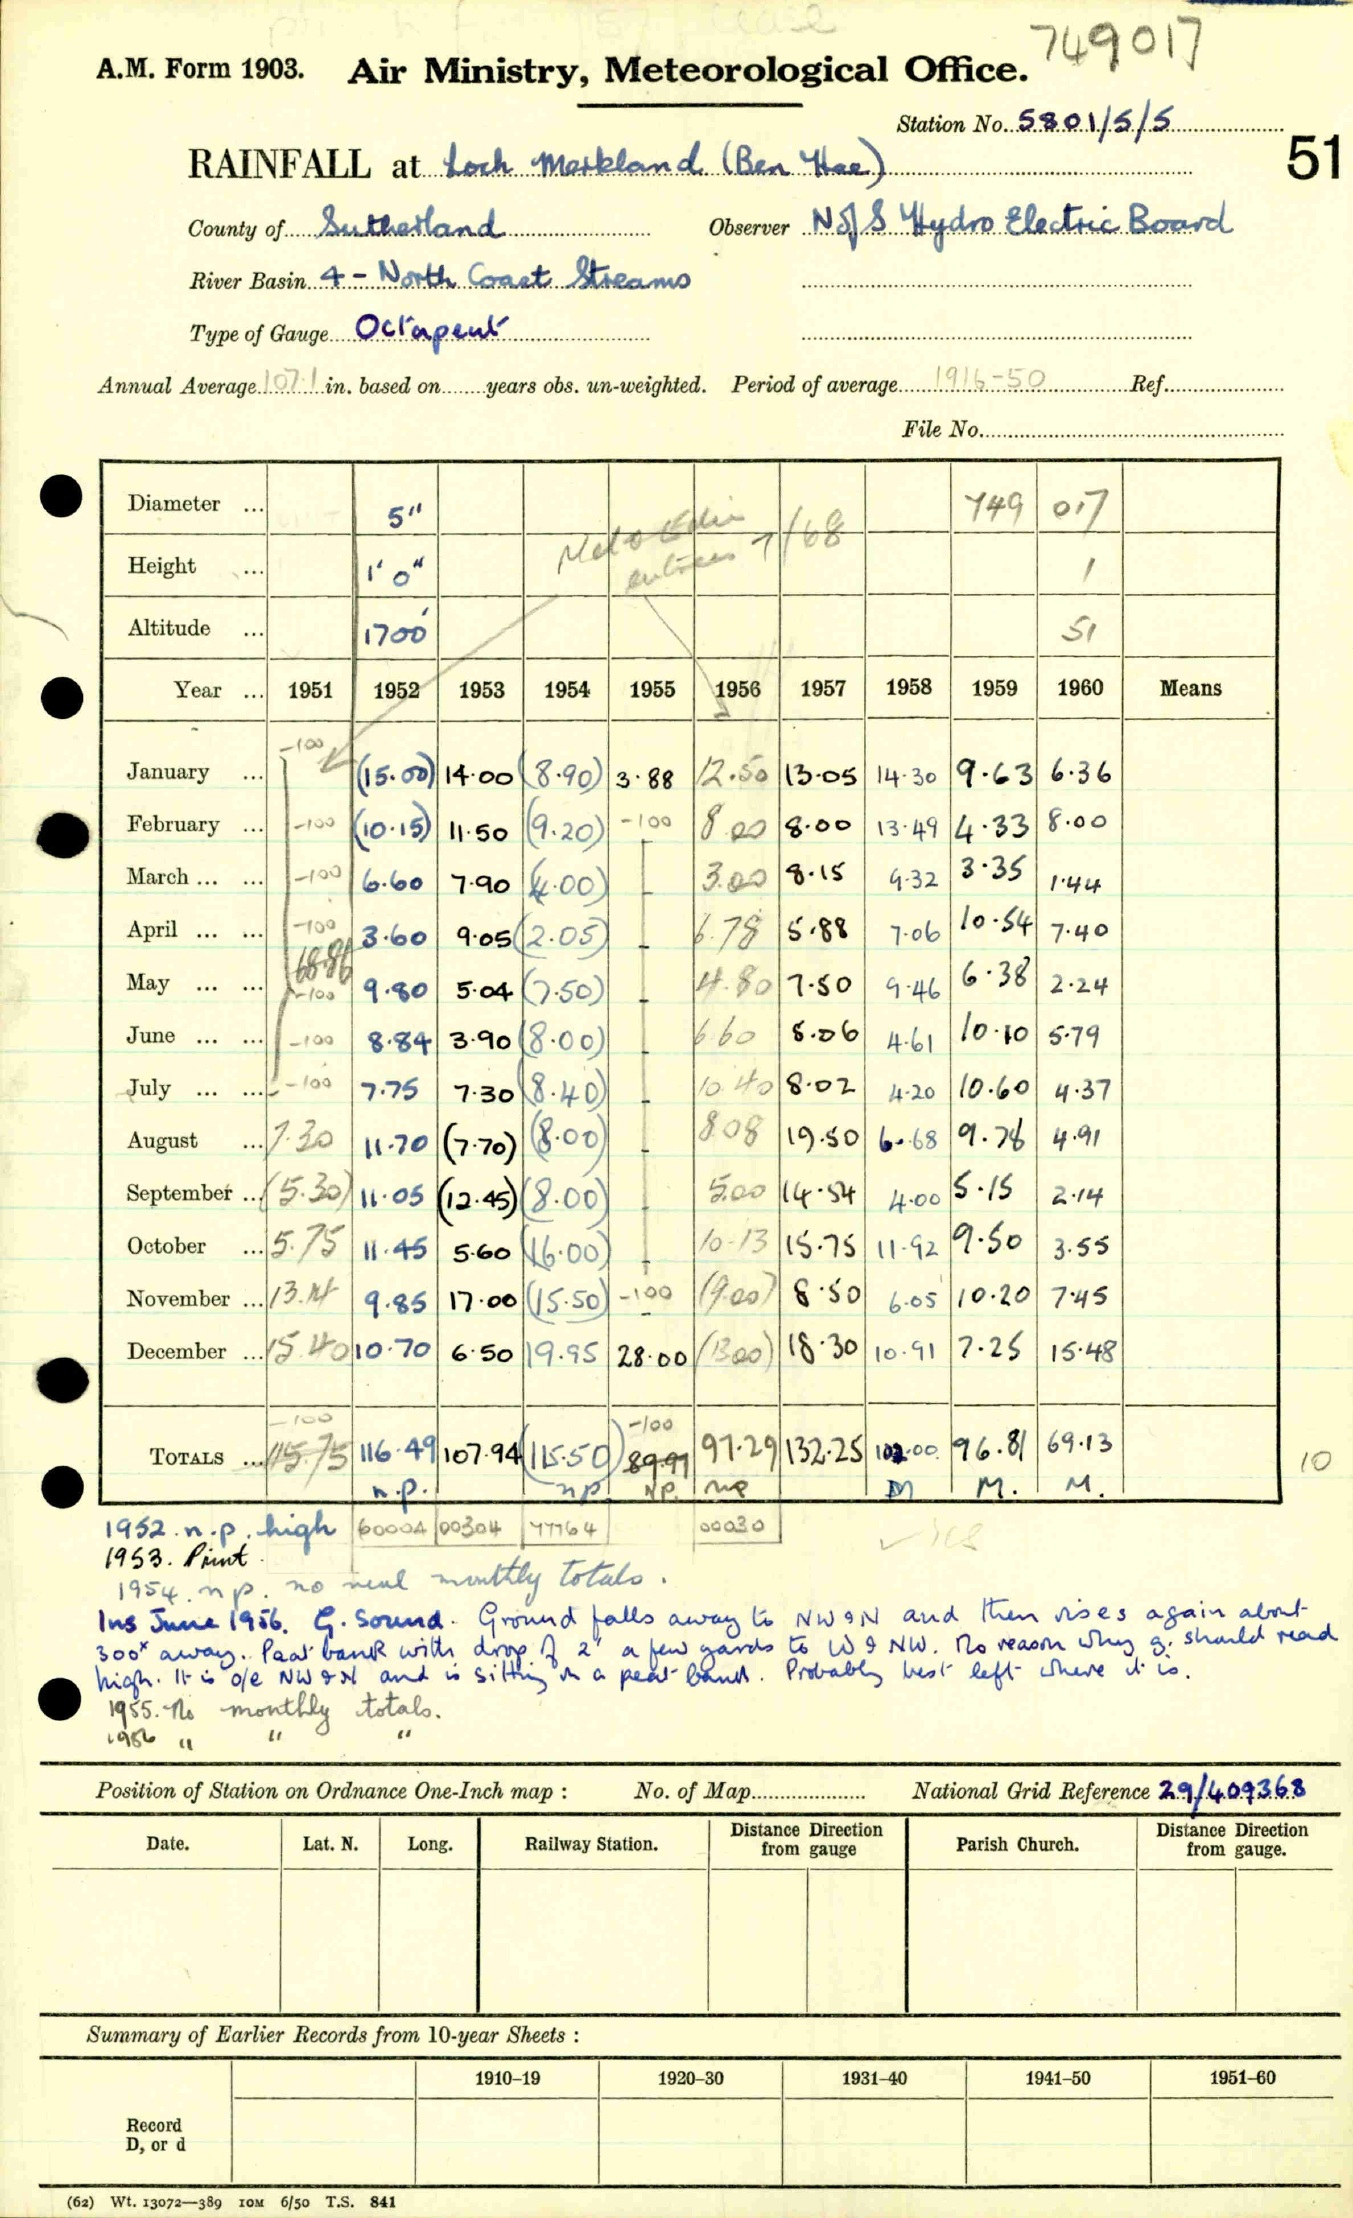 749017
A.M. Form 1903. Air Ministry, Meteorological Office.
Station No. 5801/5/5
51
RAINFALL at Loch Merkland (Ben Hee)
County of Sutherland Observer N of S Hydro Electric Board
River Basin 4 - North Coast Streams
Type of Gauge Octapent
Annual Average 107.1 in. based on years obs. un-weighted. Period of average 1916-50 Ref.
File No.
Diameter ... 5" 749 017
Height ... 1' 0" 1
Altitude ... 1700' 51
Met O Edin entries 7/68
Year ... 1951 1952 1953 1954 1955 1956 1957 1958 1959 1960 Means
January ... -100 (15.00) 14.00 (8.90) 3.88 12.50 13.05 14.30 9.63 6.36
February ... -100 (10.15) 11.50 (9.20) -100 8.00 8.00 13.49 4.33 8.00
March ... ... -100 6.60 7.90 (4.00) - 3.00 8.15 9.32 3.35 1.44
April ... ... -100 3.60 9.05 (2.05) - 6.78 5.88 7.06 10.54 7.40
68.86
May ... ... -100 9.80 5.04 (7.50) - 4.80 7.50 9.46 6.38 2.24
June ... ... -100 8.84 3.90 (8.00) - 6.60 5.06 4.61 10.10 5.79
July ... ... -100 7.75 7.30 (8.40) - 10.40 8.02 4.20 10.60 4.37
August ... 7.30 11.70 (7.70) (8.00) - 8.08 19.50 6.68 9.78 4.91
September ... (5.30) 11.05 (12.45) (8.00) 5.00 14.54 4.00 5.15 2.14
October ... 5.75 11.45 5.60 (16.00) - 10.13 15.75 11.92 9.50 3.55
November ... 13.14 9.85 17.00 (15.50) -100 (9.00) 8.50 6.05 10.20 7.45
December ... 15.40 10.70 6.50 19.95 28.00 (13.00) 18.30 10.91 7.25 15.48
-100 -100
TOTALS ... 115.75 116.49 107.94 (115.50) 89.97 97.29 132.25 102.00 96.81 69.13
10
n.p. np N.P. np M M. M.
1952. n.p. high 60004 00304 77764 00030
1953. Print.
1954. n.p. no real monthly totals.
Ins June 1956. G. Sound. Ground falls away to NW & N and then rises again about
300x away. Peat bank with drop of 2' a few yards to W & NW. No reason why g. should read
high. It is o/e NW & N and is sitting on a peat bank. Probably best left where it is.
1955. No monthly totals.
1956 " " "
Position of Station on Ordnance One-Inch map : No. of Map National Grid Reference 29/409368
Date. Lat. N. Long. Railway Station. Distance from gauge Direction Parish Church. Distance from gauge. Direction
Summary of Earlier Records from 10-year Sheets :
1910–19 1920–30 1931–40 1941–50 1951–60
Record
D, or d
(62) Wt. 13072—389 10M 6/50 T.S. 841